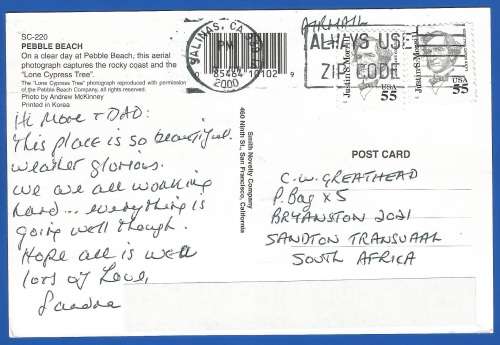 SC-220
PEBBLE BEACH
On a clear day at Pebble Beach, this aerial
photograph captures the rocky coast and the
"Lone Cypress Tree".
The "Lone Cypress Tree" photograph reproduced with permission
of the Pebble Beach Company. All rights reserved.
Photo by Andrew McKinney
Printed in Korea
Hi Mom + DAD:
This place is so beautiful.
weather glorious.
We are all working
hard... everything is
going well though.
Hope all is well
lots of Love,
Sandra
SALINAS, CA
PM
2000
0 85464 10102 9
AIRMAIL
ALWAYS USE
ZIP CODE
Justin S. Morrill
USA
55
Justin S. Morrill
USA
55
Smith Novelty Company
460 Ninth St., San Francisco, California
POST CARD
C.W. GREATHEAD
P. Bag X5
BRYANSTON 2021
SANDTON TRANSVAAL
SOUTH AFRICA